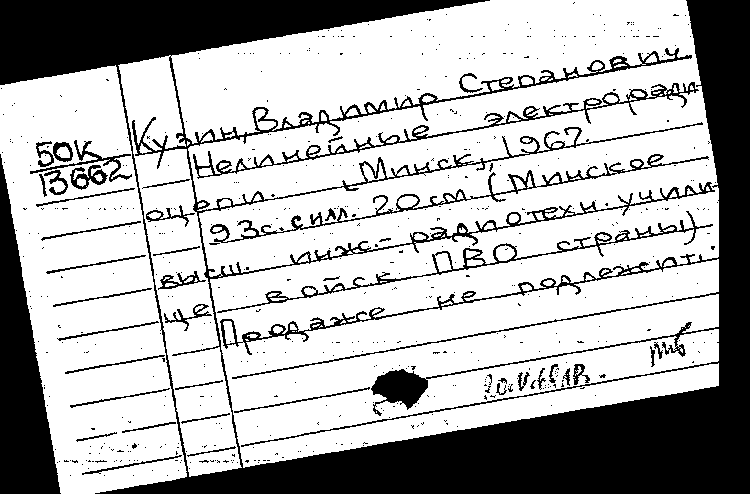 50К
13662
Кузин, Владимир Степанович
Нелинейные электроради
оцепи. [Минск], 1967.
93с. с илл. 20см. (Минское
высш. инж.- радиотехн. учили
ще войск ПВО страны)
Продаже не подлежит.